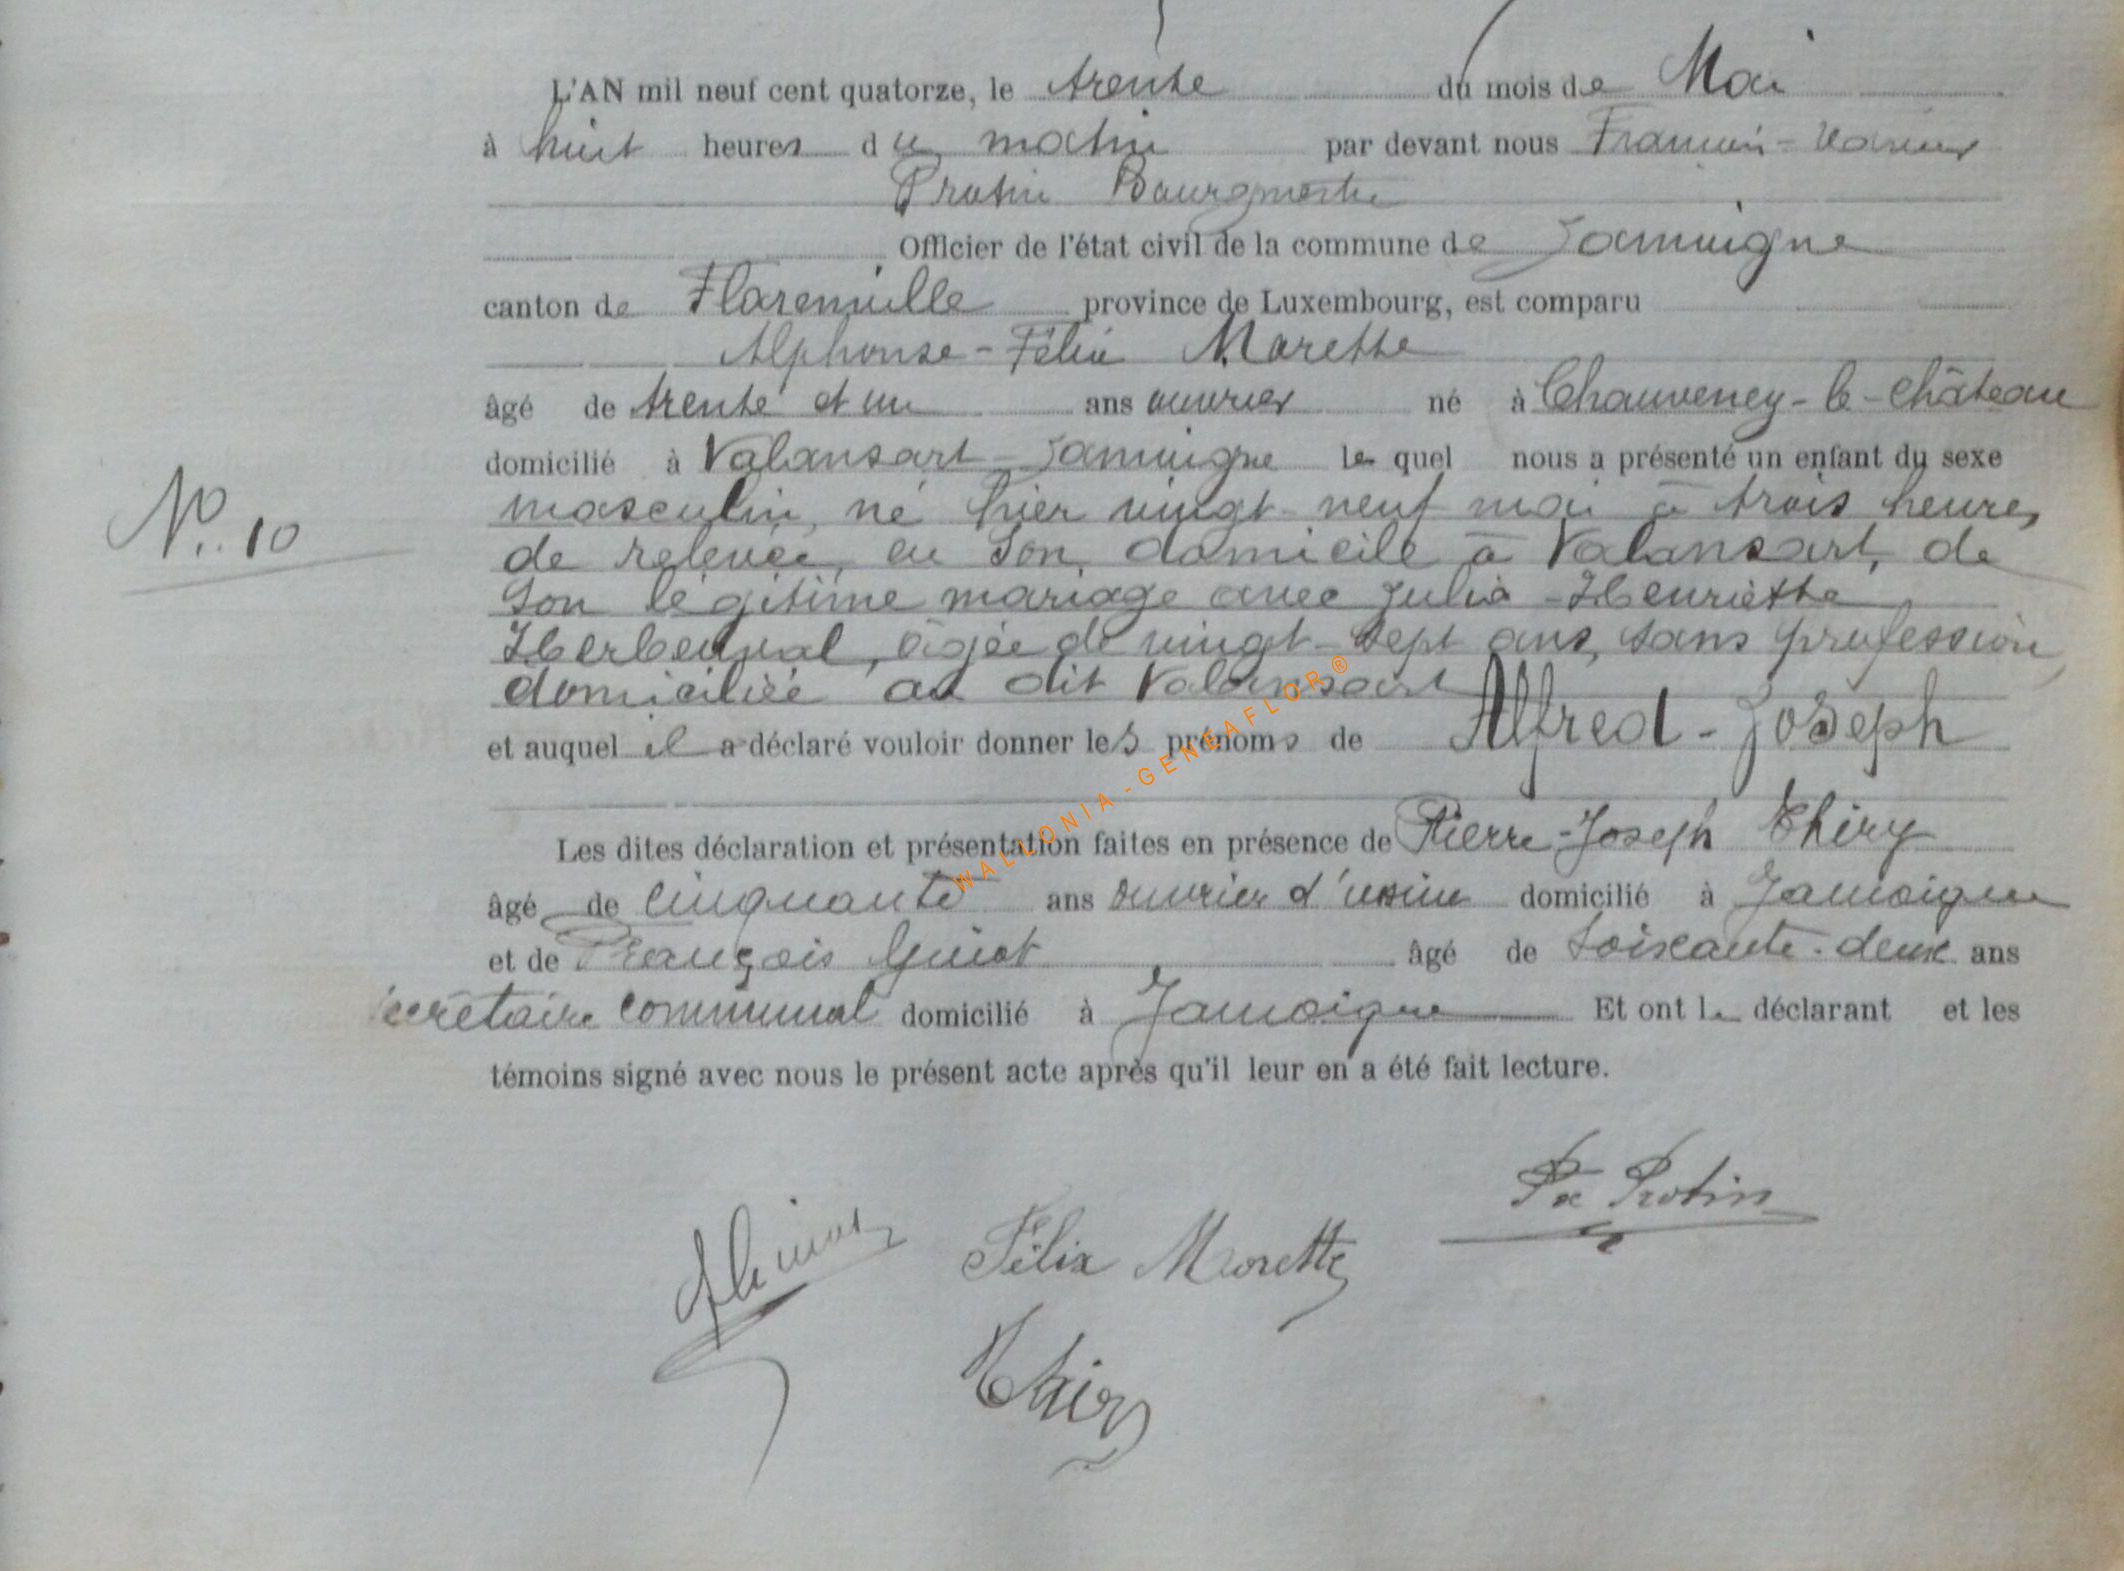 L'AN mil neuf cent quatorze, le trente du mois de Mai
à huit heures du matin par devant nous François-Xavier
Protin Bourgmestre
Officier de l'état civil de la commune de Jamoigne
canton de Florenville province de Luxembourg, est comparu
Alphonse-Félix Marette
âgé de trente et un ans ouvrier né à Chauvency-le-Château
domicilié à Valansart-Jamoigne lequel nous a présenté un enfant du sexe
masculin, né hier vingt-neuf mai à trois heures
N°. 10
de relevée, en son domicile à Valansart, de
son légitime mariage avec Julia-Henriette
Herbeuval, âgée de vingt-sept ans, sans profession,
domiciliée au dit Valansart
et auquel il a déclaré vouloir donner les prénoms de Alfred-Joseph
WALLONIA-GENEAFLOR®
Les dites déclaration et présentation faites en présence de Pierre-Joseph Thiry
âgé de cinquante ans ouvrier d'usine domicilié à Jamoigne
et de François Guiot âgé de soixante-deux ans
secrétaire communal domicilié à Jamoigne Et ont le déclarant et les
témoins signé avec nous le présent acte après qu'il leur en a été fait lecture.
Protin
Félix Marette
Thiry